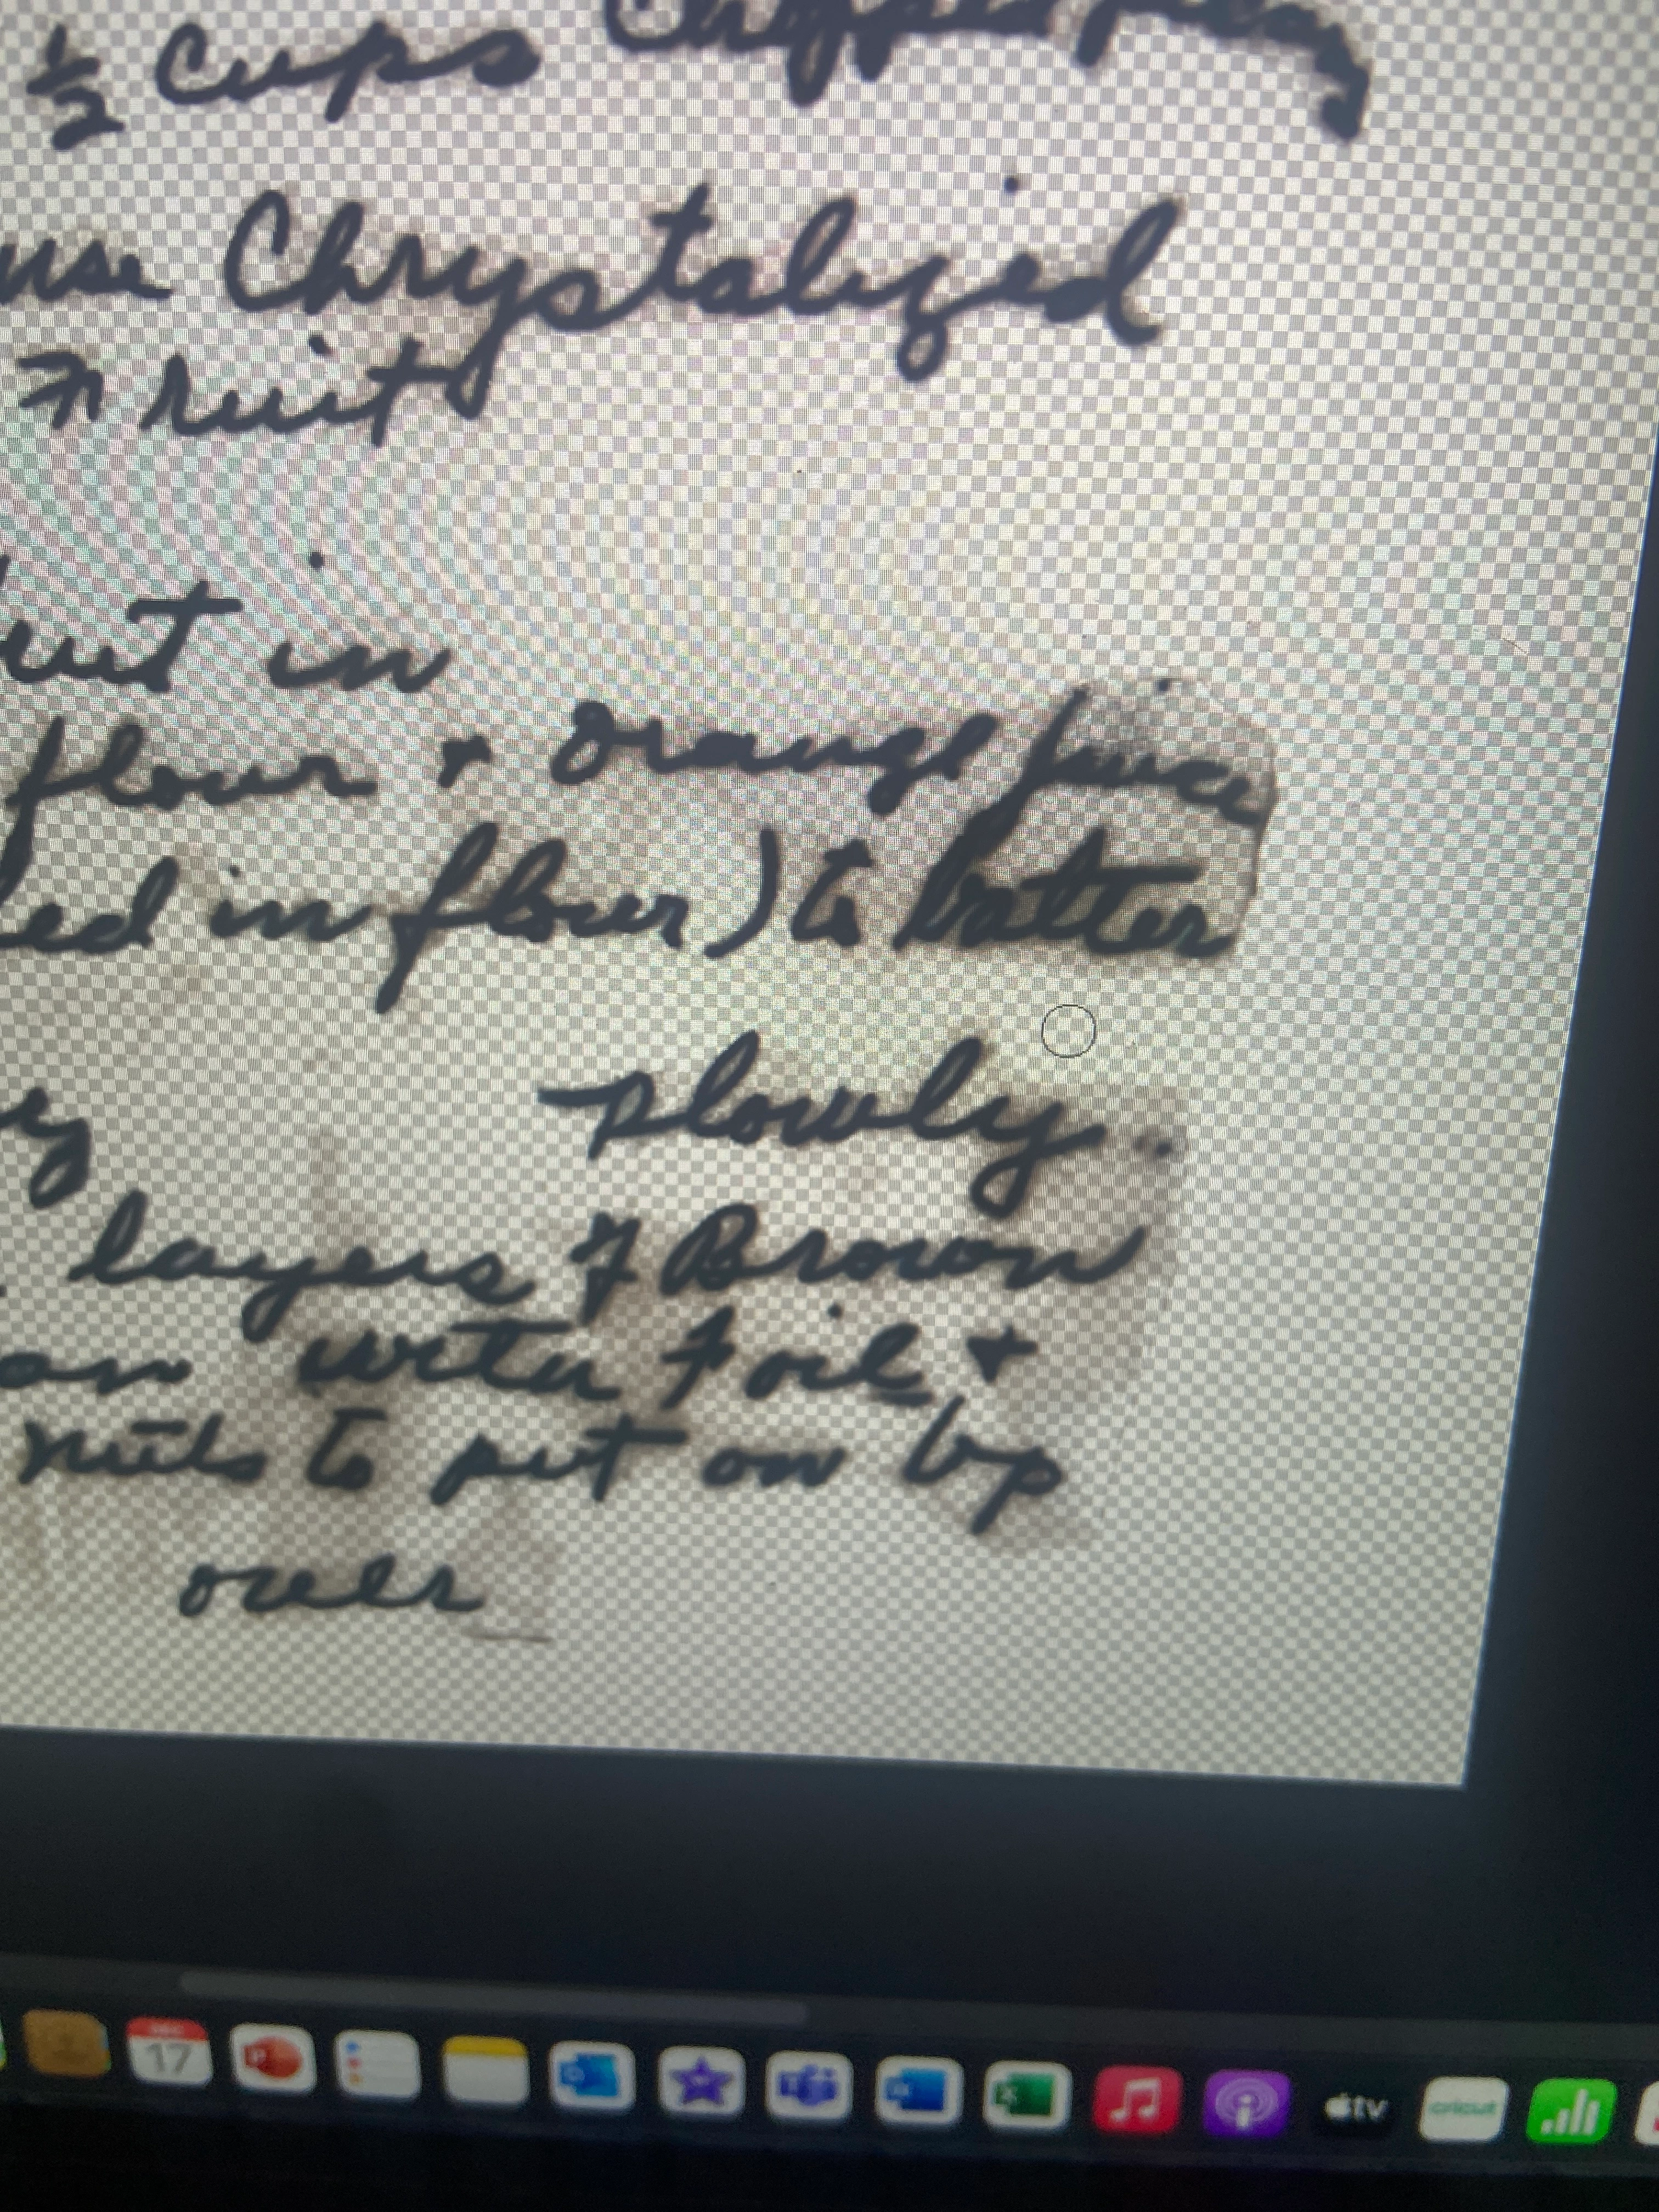 ½ cups Chopped
use Chrystalized
Fruit
in
flour + orange juice
in flour) to batter
slowly.
layers of Brown
with Foil +
nuts to put on top
over
17
tv
cricut